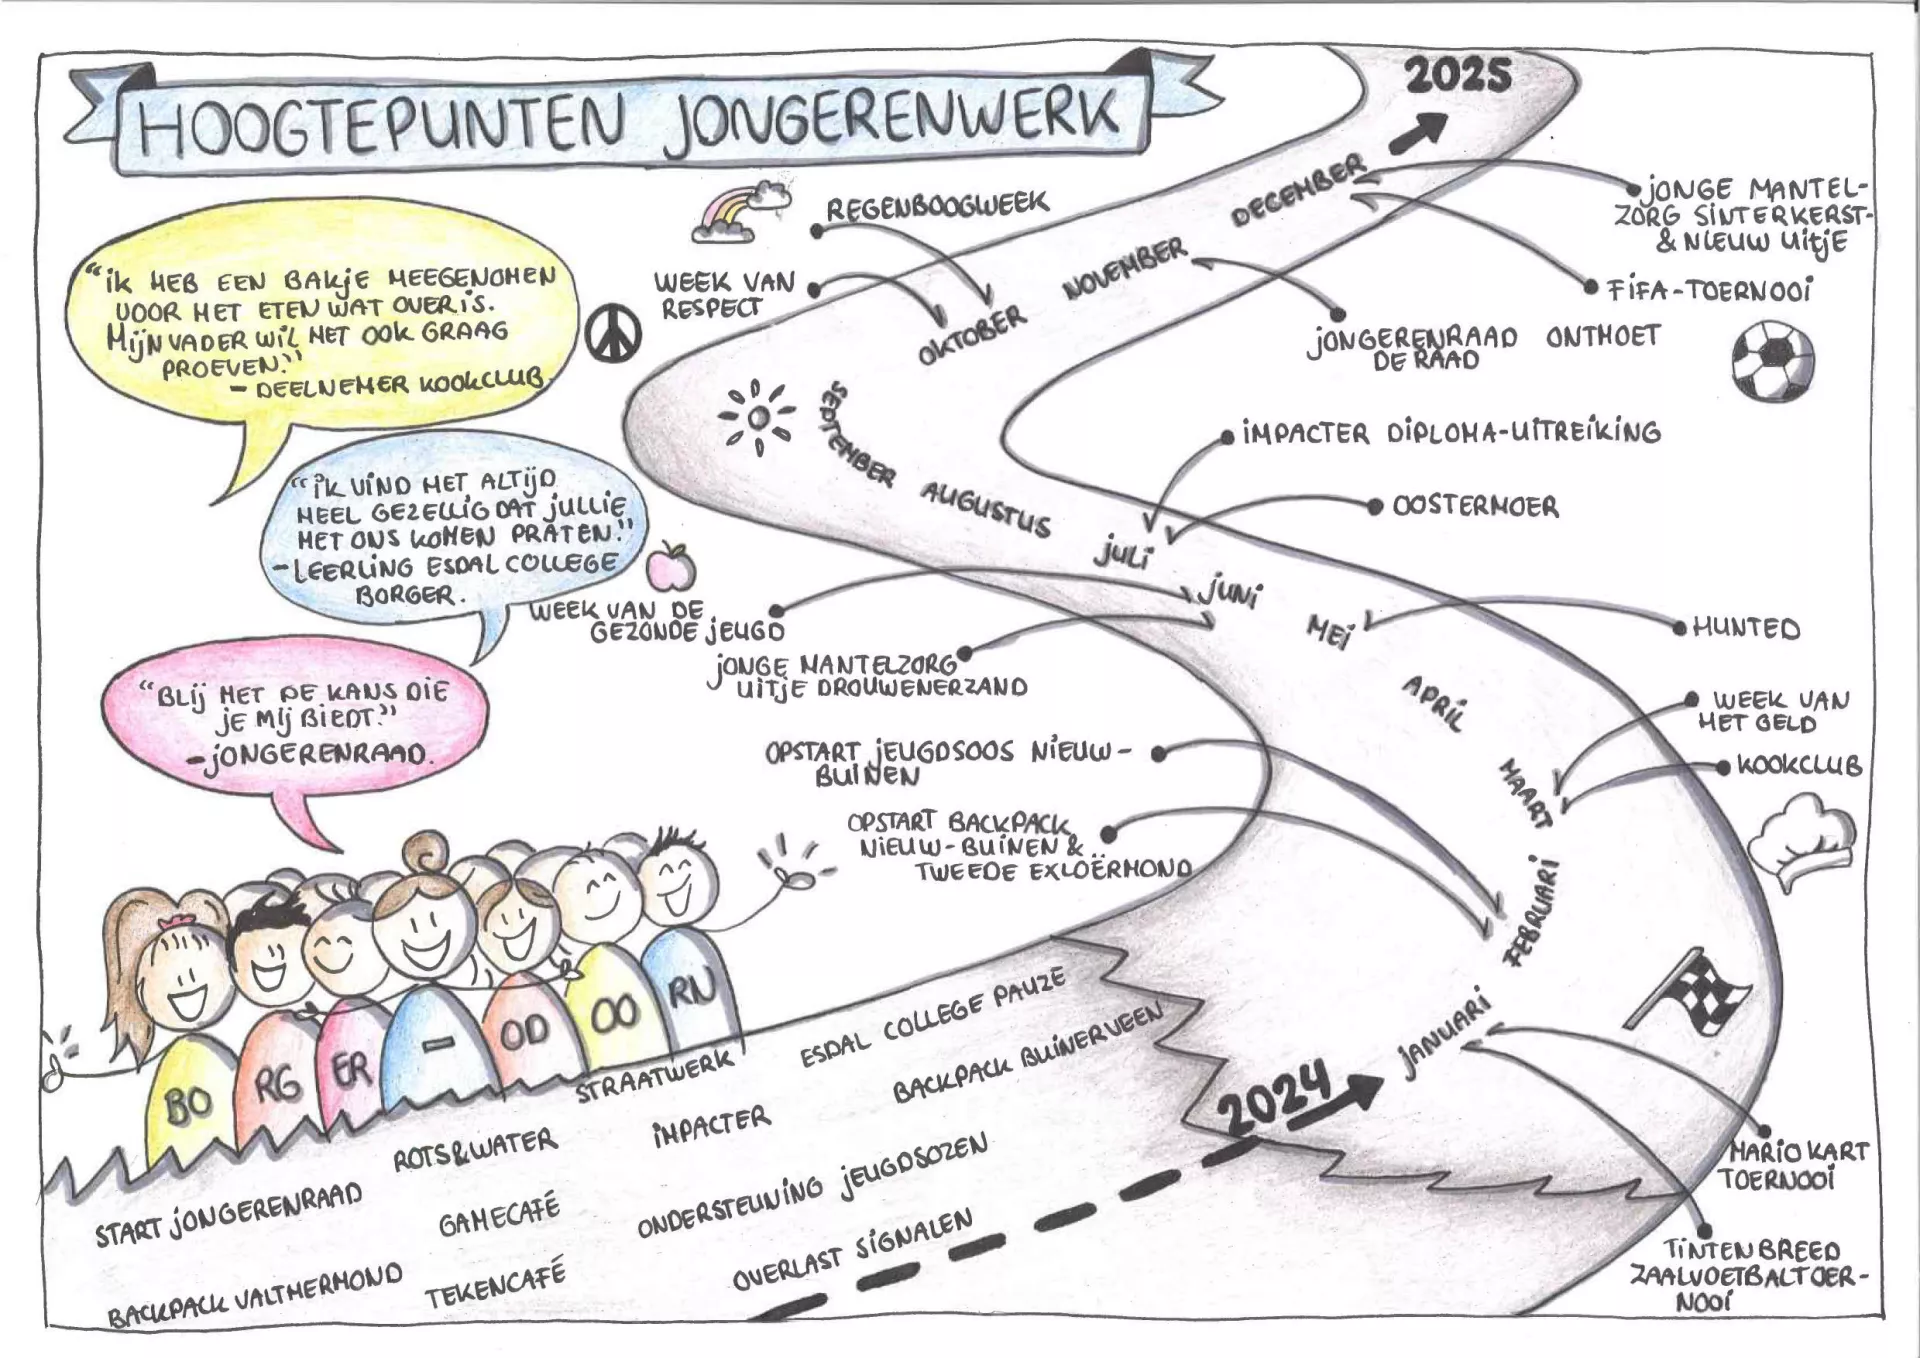 HOOGTEPUNTEN JONGERENWERK
2025
"IK HEB EEN BAKJE MEEGENOMEN
VOOR HET ETEN WAT OVER IS.
MIJN VADER WIL HET OOK GRAAG
PROEVEN."
- DEELNEMER KOOKCLUB
"IK VIND HET ALTIJD
HEEL GEZELLIG DAT JULLIE
MET ONS KOMEN PRATEN."
- LEERLING ESDAL COLLEGE
BORGER.
"BLIJ MET DE KANS DIE
JE MIJ BIEDT."
- JONGERENRAAD.
REGENBOOGWEEK
WEEK VAN
RESPECT
DECEMBER
NOVEMBER
OKTOBER
SEPTEMBER
AUGUSTUS
JULI
JUNI
MEI
APRIL
MAART
FEBRUARI
JANUARI
2024
JONGE MANTEL-
ZORG SINTERKERST-
& NIEUW UITJE
FIFA-TOERNOOI
JONGERENRAAD ONTMOET
DE RAAD
IMPACTER DIPLOMA-UITREIKING
OOSTERMOER
WEEK VAN DE
GEZONDE JEUGD
JONGE MANTELZORG
UITJE DROUWENERZAND
HUNTED
WEEK VAN
HET GELD
KOOKCLUB
OPSTART JEUGDSOOS NIEUW-
BUINEN
OPSTART BACKPACK
NIEUW-BUINEN &
TWEEDE EXLOËRMOND
MARIO KART
TOERNOOI
TINTEN BREED
ZAALVOETBALTOER-
NOOI
BO RG ER - OD OO RN
STRAATWERK
ESDAL COLLEGE PAUZE
ROTS & WATER
IMPACTER
BACKPACK BUINERVEEN
START JONGERENRAAD
GAMECAFÉ
ONDERSTEUNING JEUGDSOZEN
BACKPACK VALTHERMOND
TEKENCAFÉ
OVERLAST SIGNALEN